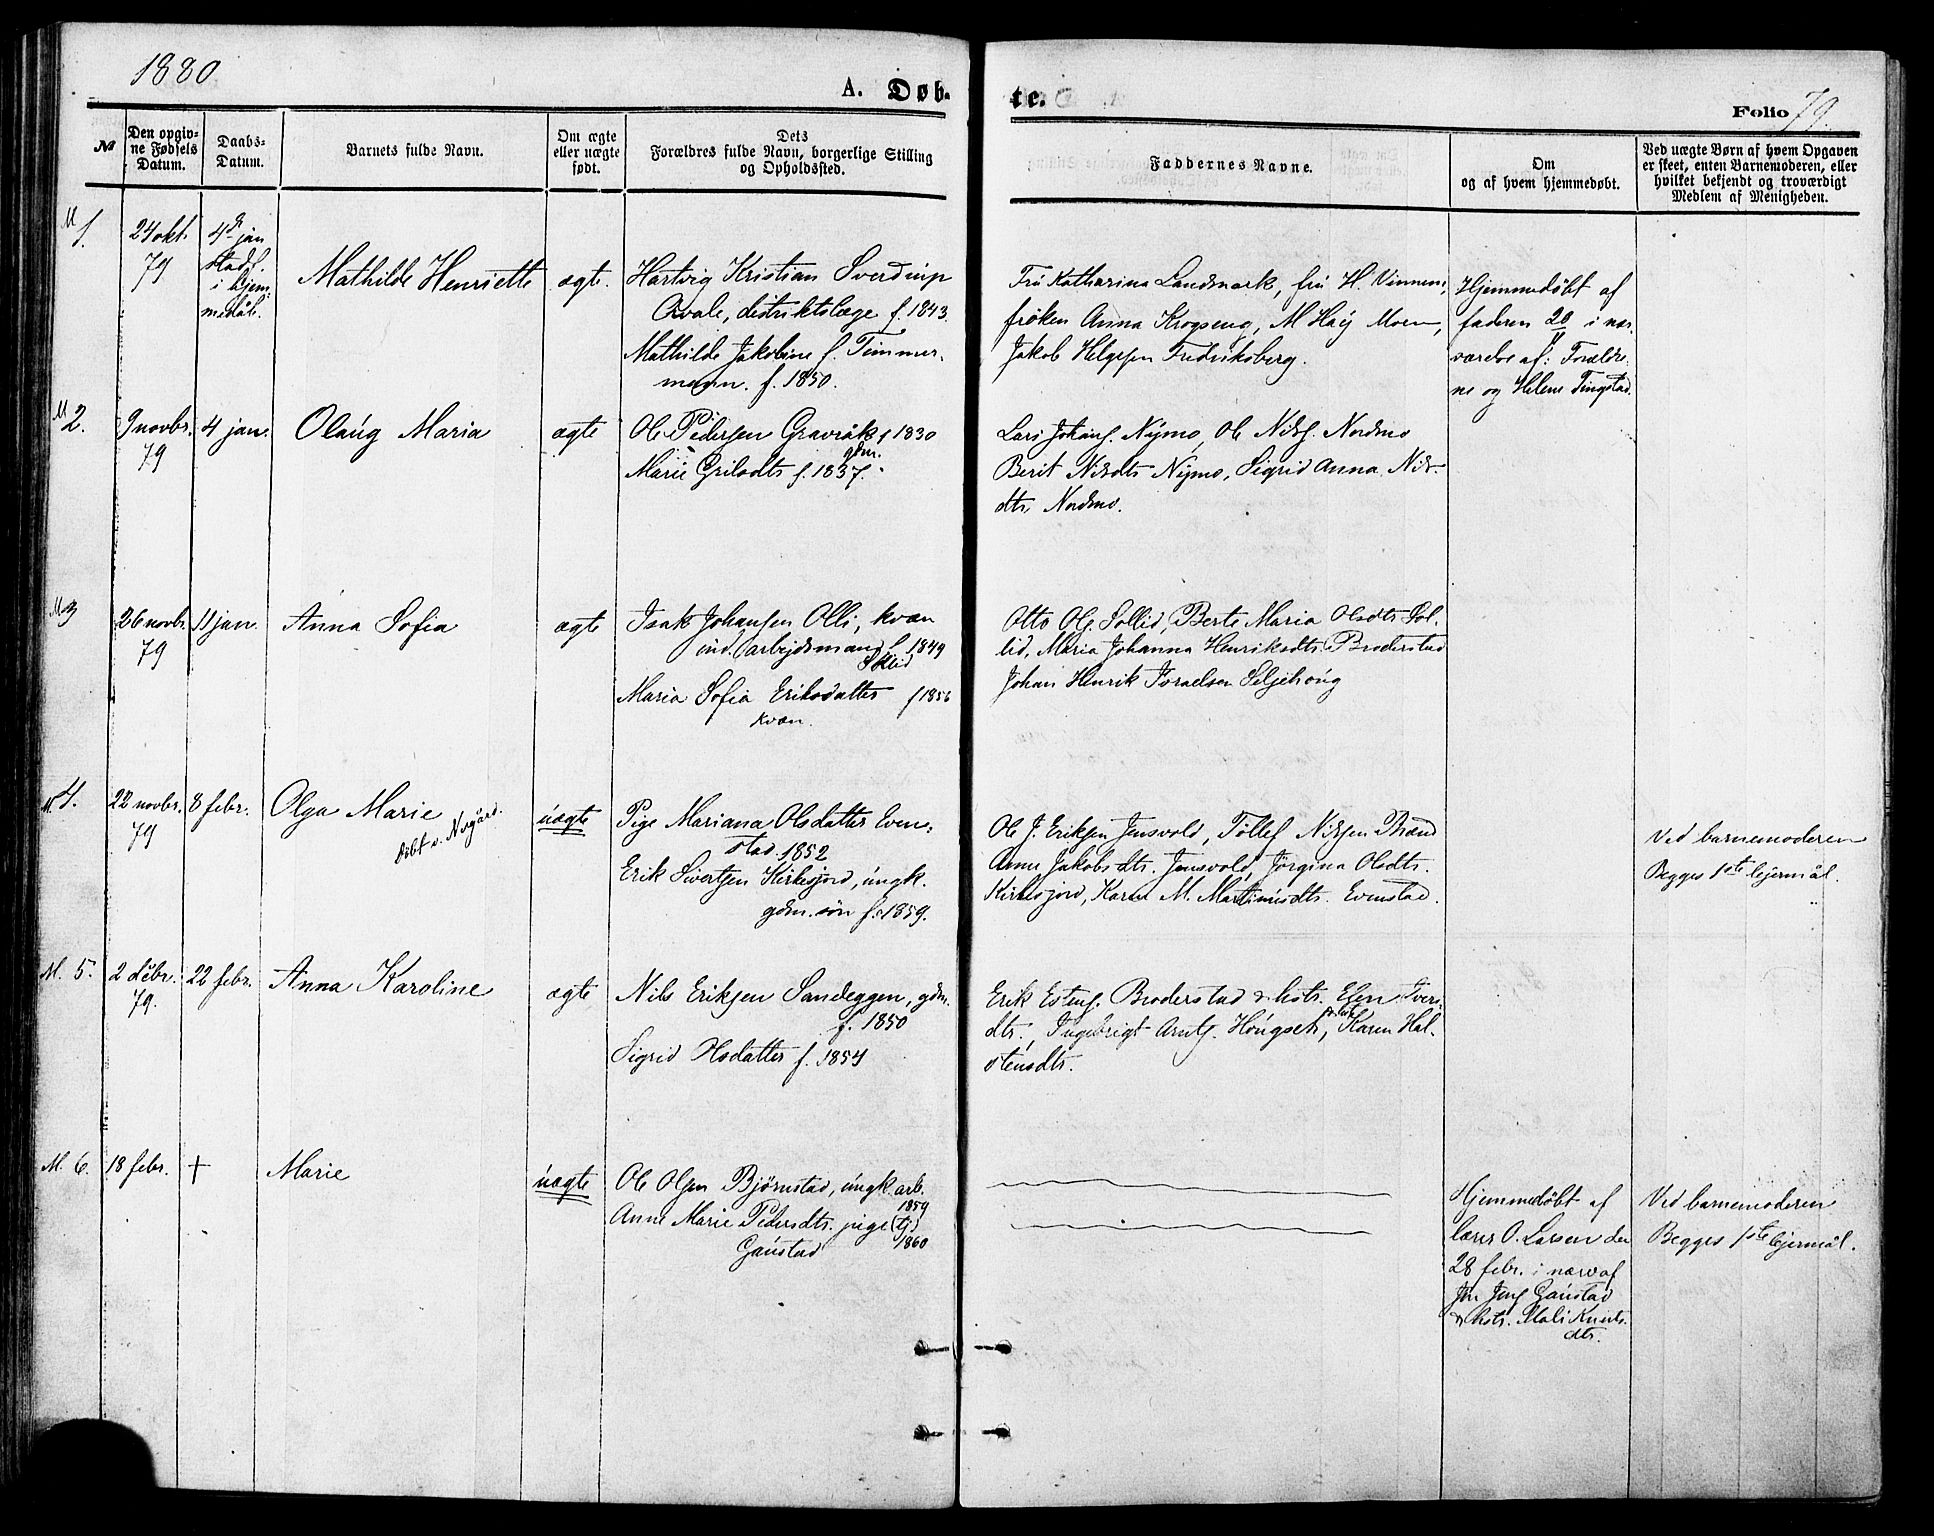 1880
A. Døb-
te.
Folio 79.
№
Den opgiv-
ne Fødsels
Datum.
Daabs-
Datum.
Barnets fulde Navn.
Om ægte
eller uægte
født.
Dets
Forældres fulde Navn, borgerlige Stilling
og Opholdssted.
Faddernes Navne.
Om
og af hvem hjemmedøbt.
Ved uægte Børn af hvem Opgaven
er skeet, enten Barnemoderen, eller
hvilket bekjendt og troværdigt
Medlem af Menigheden.
M 1.
24 okt.
79
4de jan
stadf.
i hjem-
medåb.
Mathilde Henriette
ægte.
Hartvig Kristian Sverdrup
Qvale, distriktslæge f. 1843.
Mathilde Jakobine f. Timmer-
mann. f. 1850.
Fru Katharina Landmark, fru H. Vinnem,
frøken Anna Krogseng, M Høij Moen,
Jakob Helgesen Fredriksberg.
Hjemmedøbt af
faderen 20 i nær-
værelse af: Forældre-
ne og Helene Tingstad.
M 2.
9 novbr.
79
4 jan.
Olaug Maria
ægte
Ole Pedersen Gravråk f 1830
gdm.
Marie Erilsdts f. 1837.
Lars Johans. Nymo, Ole Nils. Nordmo
Berit Nilsdts Nymo, Sigrid Anna Nils-
dts. Nordmo.
M 3
26 novbr.
79
11 jan.
Anna Sofia
ægte
Isak Johansen Olli, kvæn
ind. arbejdsmand f. 1849
Sollid
Maria Sofia Eriksdatter f 1856
kvæn.
Otto Ols. Sollid, Berte Maria Olsdts Sol-
lid, Maria Johanna Henriksdts. Broderstad
Johan Henrik Israelsen Seljehoug
M. 4.
22 novbr.
79
8 febr.
Olga Marie
døbt v. Norgård.
uægte
Pige Mariana Olsdatter Even-
stad 1852
Erik Sivertsen Kirkesjord, ungk.
gdm. søn f. 1859.
Ole J. Eriksen Jensvold, Tollef Nilsen Brænd
Anne Jakobsdts. Jensvold, Jørgina Olsdts.
Kirkesjord, Karen M. Martinusdts. Evenstad.
Ved barnemoderen
Begges 1ste lejermål.
M. 5.
2 debr.
79.
22 febr.
Anna Karoline
ægte
Nils Eriksen Sandeggen, gdm.
f. 1850
Sigrid Olsdatter f. 1854
Erik Estens. Broderstad & hstr. Elen Iver-
dts., Ingebrigt Arnts. Hougseth, Karen Hal-
stensdts.
M. 6.
18 febr.
+
Marie
uægte
Ole Olsen Bjørnstad, ungk. arb.
1859
Anne Marie Pedersdts. pige (tj)
Gaustad 1860
Hjemmedøbt af
lærer O. Larsen den
28 febr. i nærv af
Jon Jens. Gaustad
& hstr. Mali Knuts-
dts.
Ved barnemoderen
Begges 1ste lejermål.